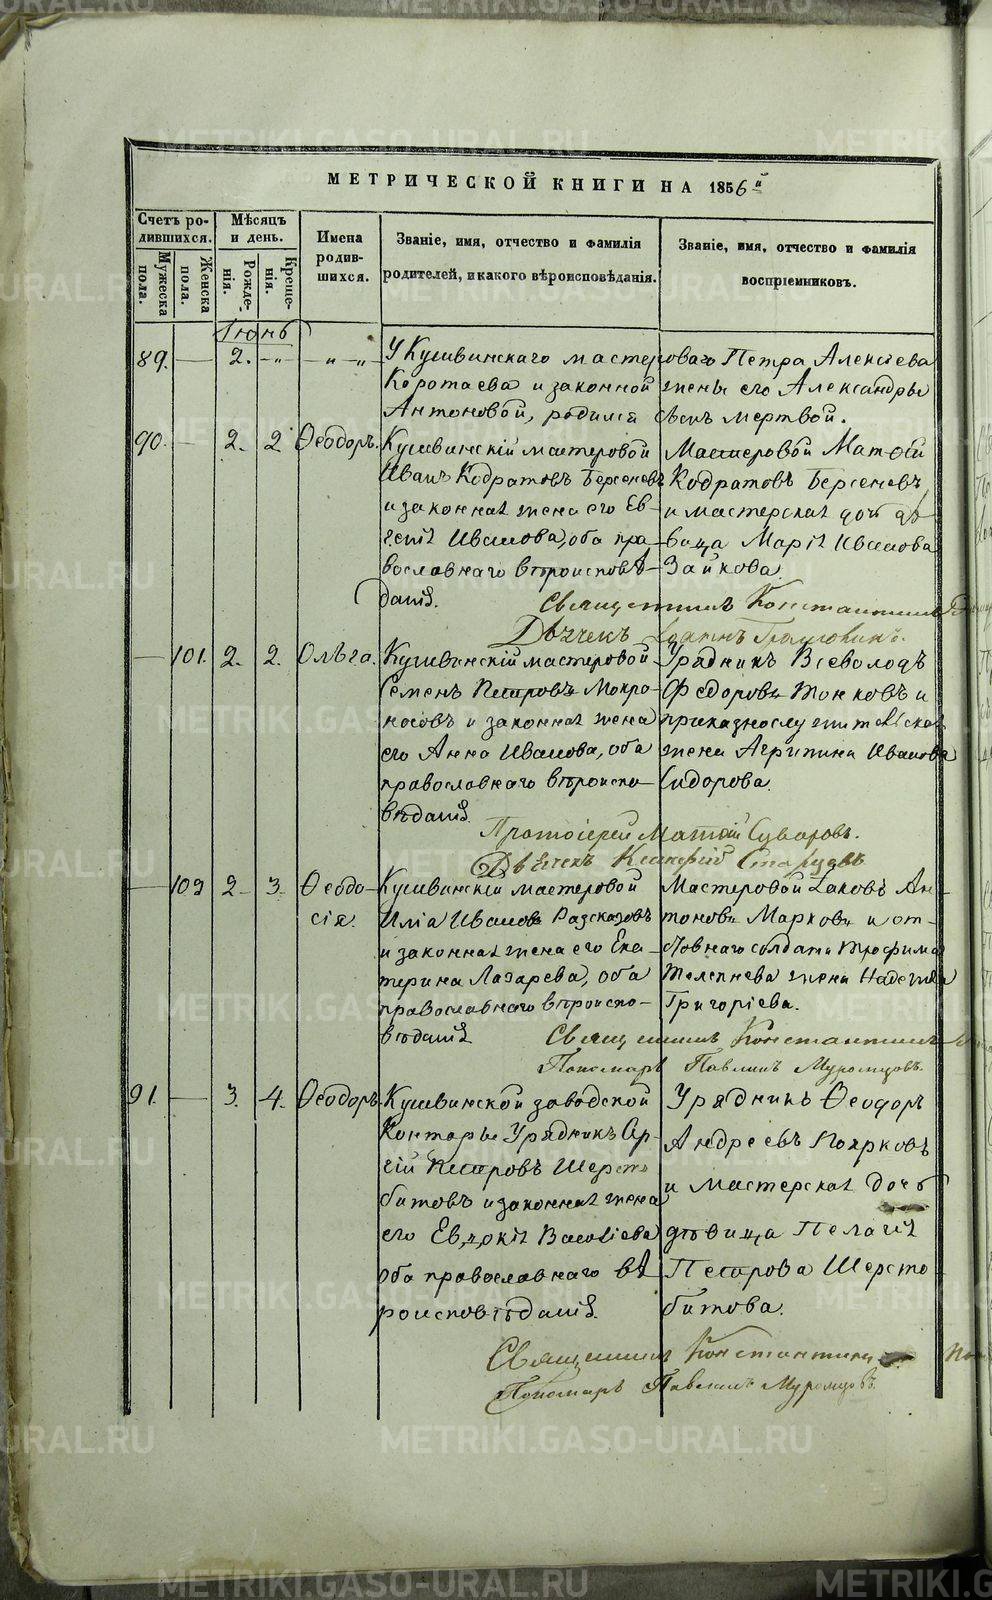 МЕТРИЧЕСКОЙ КНИГИ НА 1856й
Счетъ ро-
дившихся.
Мужеска
пола.
Женска
пола.
Мѣсяцъ
и день.
Рожде-
нія.
Креще-
нія.
Имена
родив-
шихся.
Званіе, имя, отчество и фамилія
родителей, и какого вѣроисповѣданія.
Званіе, имя, отчество и фамилія
воспріемниковъ.
Іюнь
89. — 2. -„- -„-„- У Кушвинскаго мастероваго Петра Алексѣева
Коротаева и законной жены его Александры
Антоновой, родился сынъ мертвой.
90. — 2. 2 Ѳеодоръ.
Кушвинскій мастеровой
Иванъ Кодратовъ Берсеневъ
и законная жена его Ев-
генія Иванова, оба пра-
вославнаго вѣроисповѣ-
данія.
Мастеровой Матѳій
Кодратовъ Берсеневъ
и мастерская дочь дѣ-
вица Марія Иванова
Зайкова.
Священникъ Константинъ
Дьячекъ Іоаннъ
— 101. 2. 2. Ольга.
Кушвинскій мастеровой
Семенъ Петровъ Мокро-
носовъ и законная жена
его Анна Иванова, оба
православнаго вѣроиспо-
вѣданія.
Урядникъ Всеволодъ
Федоровъ Тонковъ и
приказнослужительская
жена Агрипина Иванова
Сидорова.
Протоіерей Матѳій Суворовъ.
Дьячекъ
— 102 2 3. Ѳеодо-
сія.
Кушвинскій мастеровой
Илія Ивановъ Разсказовъ
и законная жена его Ека-
терина Лазарева, оба
православнаго вѣроиспо-
вѣданія
Мастеровой Іаковъ Ан-
тоновъ Марковъ и от-
ставнаго солдата Трофима
Телепнева жена Надежда
Григоріева.
Священникъ Константинъ
Пономарь Павлинъ Муромцовъ.
91. — 3. 4. Ѳеодоръ
Кушвинской заводской
Конторы Урядникъ Сер-
гій Петровъ Шерсто-
битовъ и законная жена
его Евдокія Васильева
оба православнаго вѣ-
роисповѣданія.
Урядникъ Ѳеодоръ
Андреевъ Поярковъ
и Мастерская дочь
дѣвица Пелагія
Петрова Шерсто-
битова.
Священникъ Константинъ
Пономарь Павлинъ Муромцовъ.
METRIKI.GASO-URAL.RU